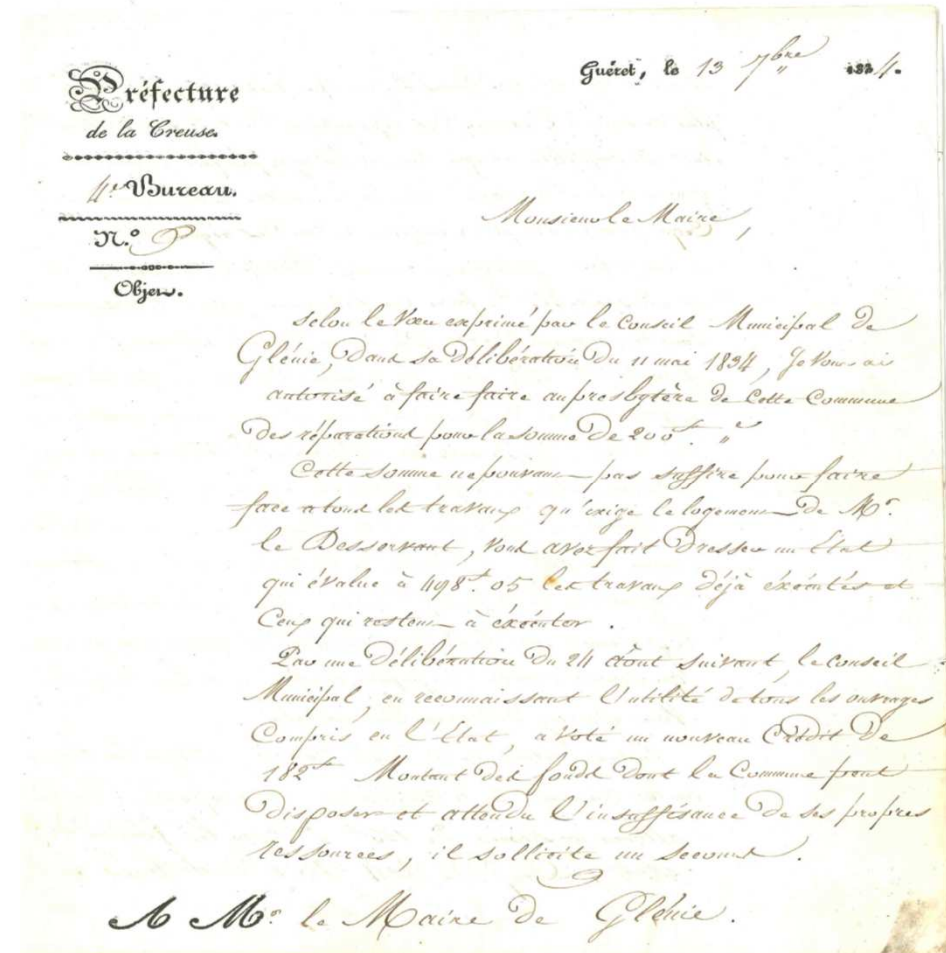 Préfecture
de la Creuse.
4e Bureau.
N.º
Objet.
Guéret, le 13 7bre 1834.
Monsieur le Maire,
Selon le Vœu exprimé par le Conseil Municipal de
Glénie, Dans sa délibération Du 11 mai 1834, Je vous ai
autorisé à faire faire au presbytère de Cette Commune
Des réparations pour la somme De 200 f. "
Cette somme ne pouvant pas suffire pour faire
face à tous les travaux qu'exige le logement De Mr.
le Desservant, vous avez fait Dresser un État
qui évalue à 498 f. 05 les travaux Déjà éxécutés et
Ceux qui restent à éxécuter.
Par une Délibération Du 24 Août Suivant, le Conseil
Municipal, en reconnaissant l'utilité de tous les ouvrages
Compris en l'État, a Voté un nouveau Crédit De
182 f. Montant Des fonds Dont la Commune peut
Disposer et attendu l'insuffisance De ses propres
ressources, il sollicite un Secours.
A Mr. le Maire De Glénie.